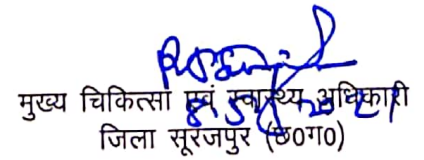 मुख्य चिकित्सा एवं स्वास्थ्य अधिकारी
जिला सूरजपुर (छ0ग0)